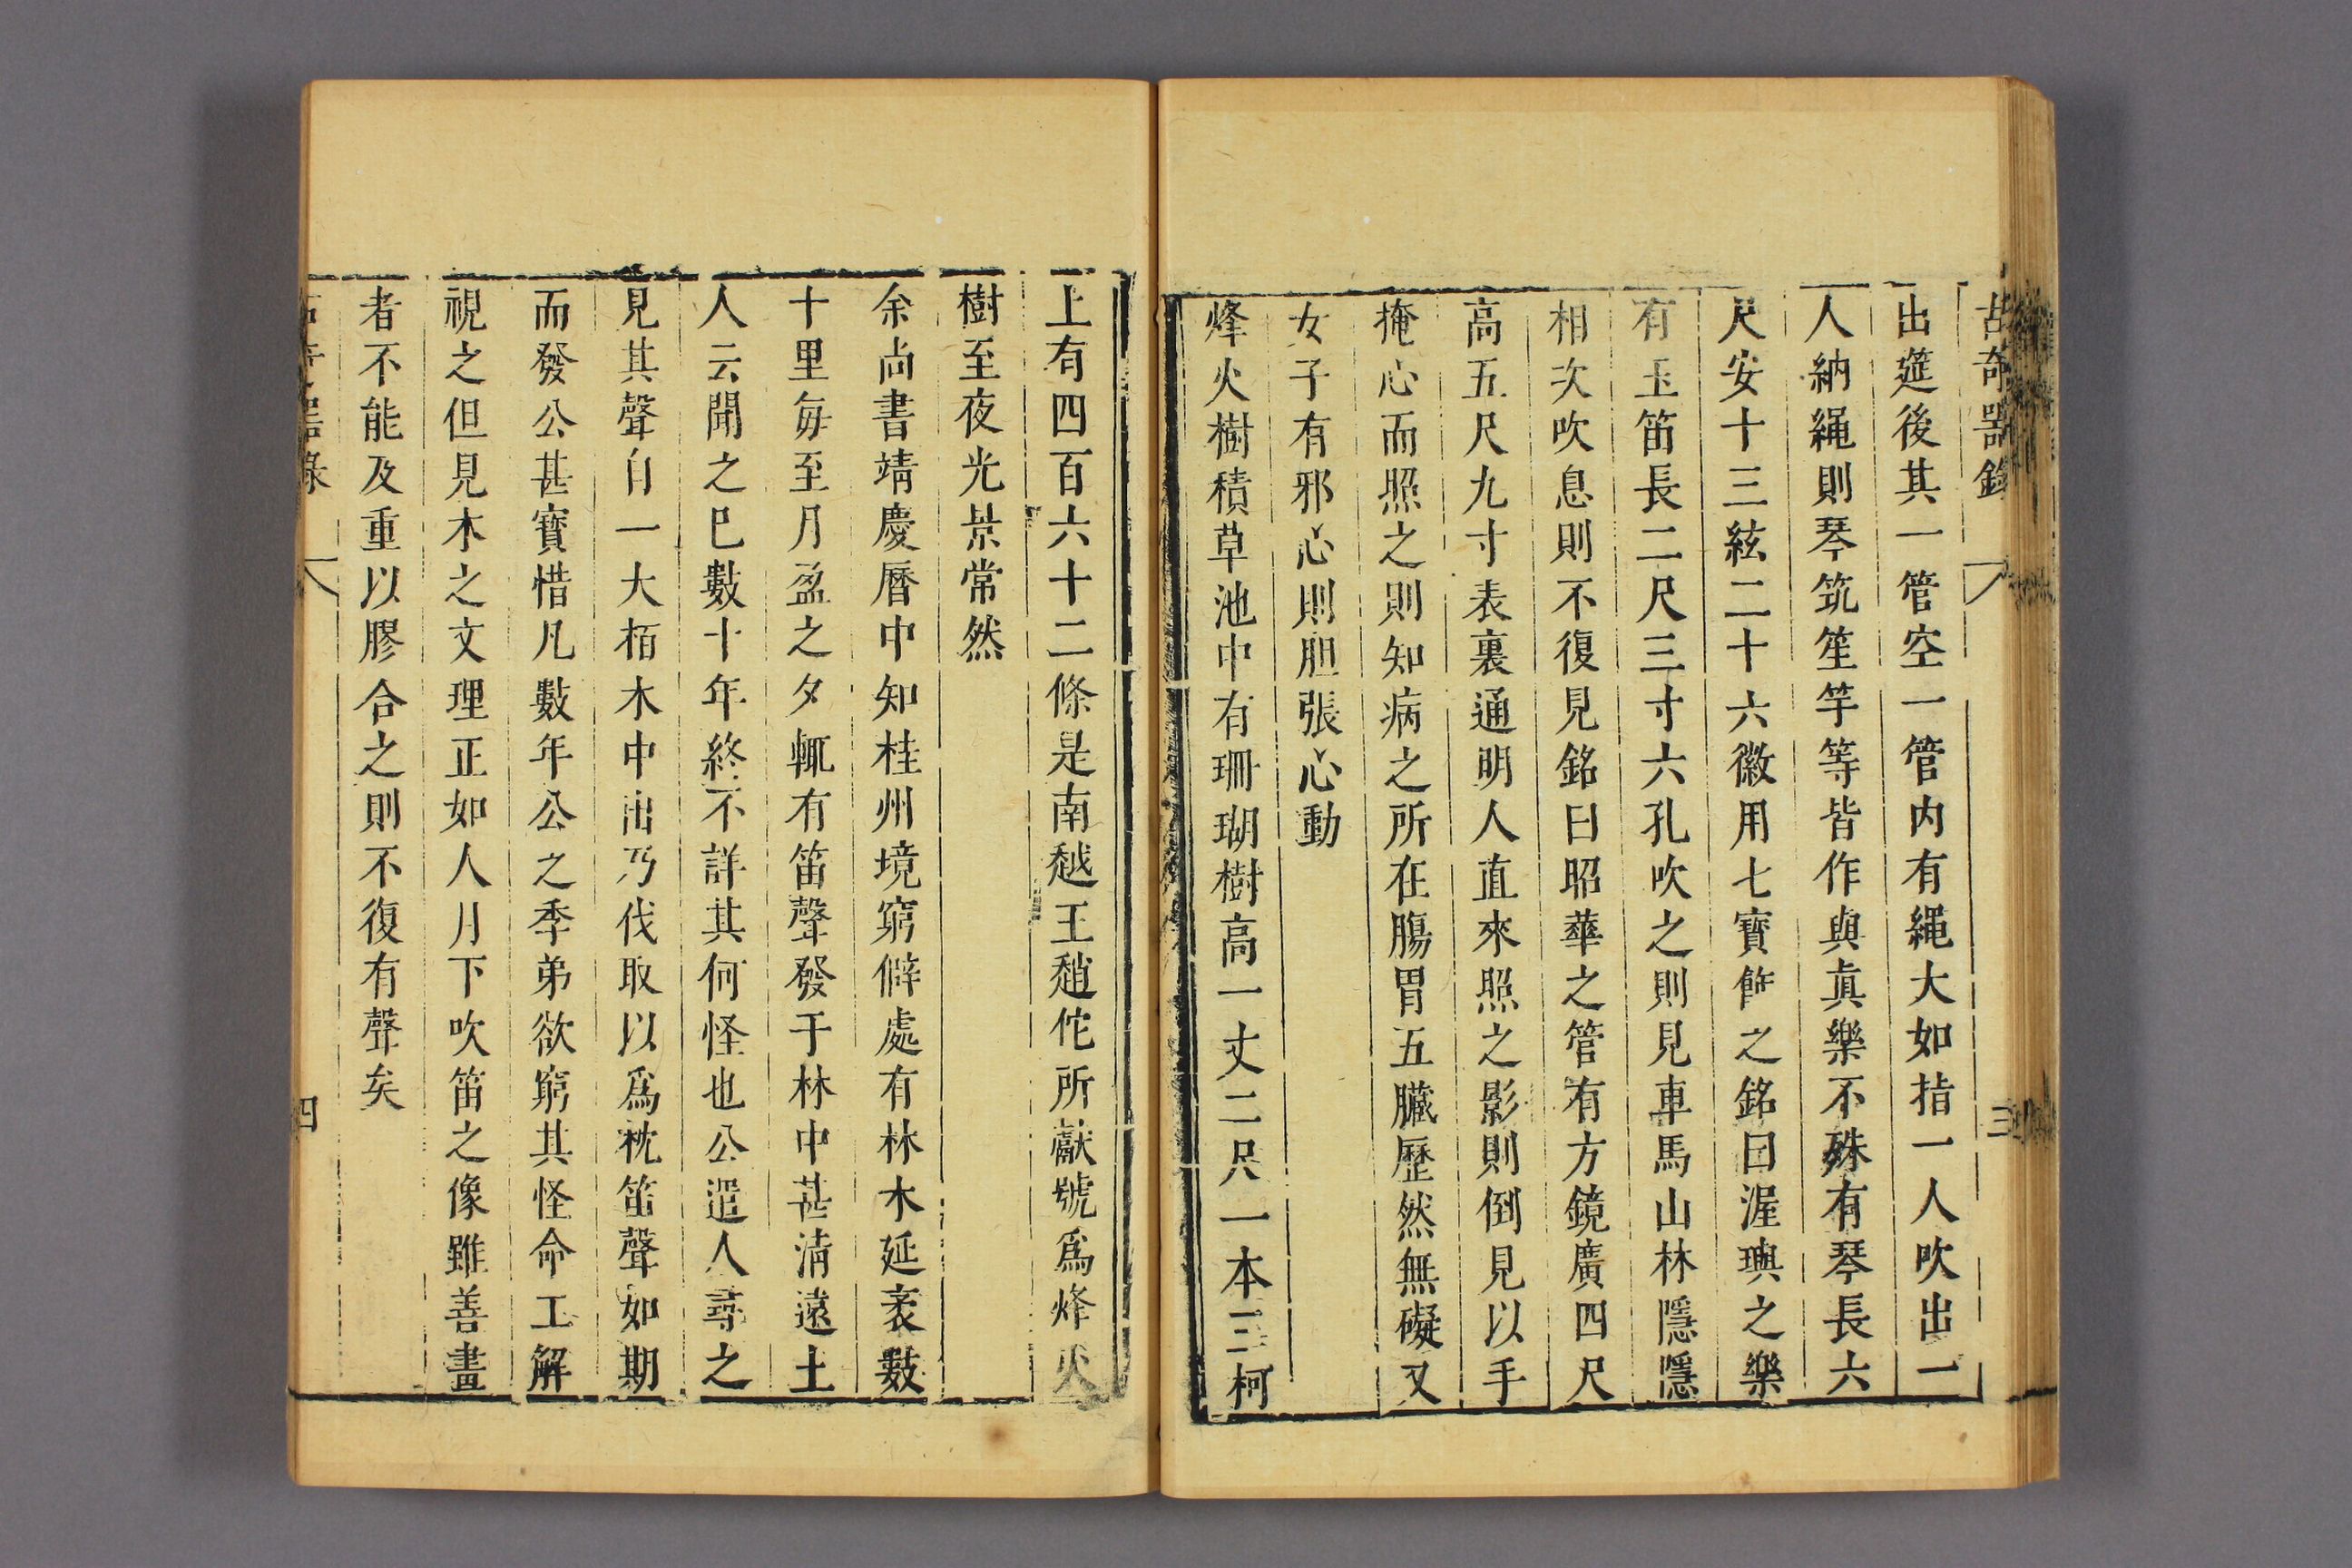 古奇器錄
三
出筵後其一管空一管内有繩大如指一人吹出一
人納繩則琴筑笙竽等皆作與眞樂不殊有琴長六
尺安十三絃二十六徽用七寶飾之銘曰渥璵之樂
有玉笛長二尺三寸六孔吹之則見車馬山林隱隱
相次吹息則不復見銘曰昭華之管有方鏡廣四尺
高五尺九寸表裏通明人直來照之影則倒見以手
掩心而照之則知病之所在腸胃五臟歷然無礙又
女子有邪心則胆張心動
烽火樹積草池中有珊瑚樹高一丈二尺一本三柯
上有四百六十二條是南越王趙佗所獻號爲烽火
樹至夜光景常然
余尚書靖慶曆中知桂州境窮僻處有林木延袤數
十里每至月盈之夕輒有笛聲發于林中甚清遠土
人云聞之巳數十年終不詳其何怪也公遣人尋之
見其聲自一大栢木中出乃伐取以爲枕笛聲如期
而發公甚寶惜凡數年公之季弟欲窮其怪命工解
視之但見木之文理正如人月下吹笛之像雖善畫
者不能及重以膠合之則不復有聲矣
古奇器錄
四